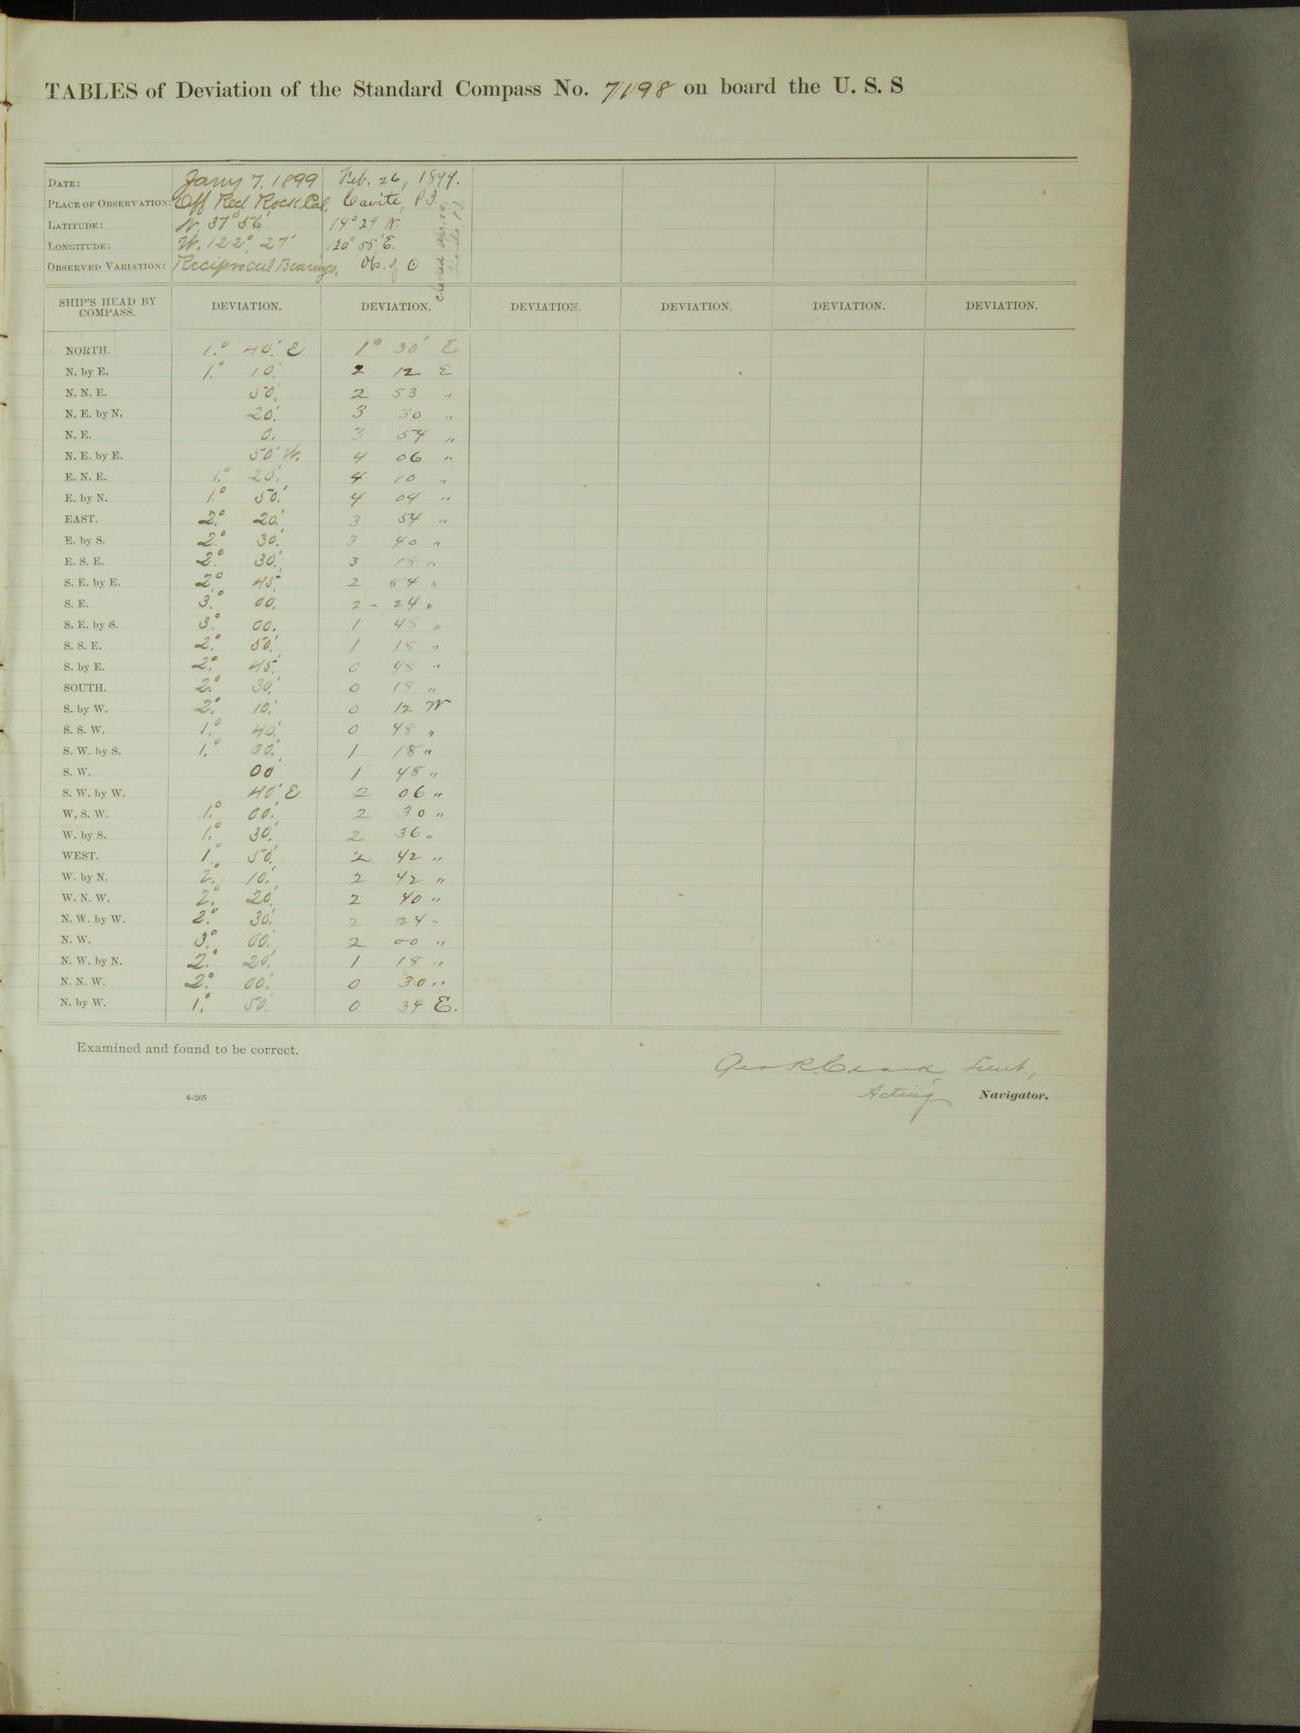 TABLES of Deviation of the Standard Compass No. 7198 on board the U. S. S
DATE: Jany 7. 1899 Feb. 26, 1899.
PLACE OF OBSERVATION: Off Red Rock, Cal. Cavite, P.I.
LATITUDE: N. 37° 56' 14° 29' N.
LONGITUDE: W. 122° 27' 120° 55' E.
OBSERVED VARIATION: Reciprocal Bearings. Obs. of ⊙
SHIP'S HEAD BY COMPASS. DEVIATION. DEVIATION. DEVIATION. DEVIATION. DEVIATION. DEVIATION.
NORTH. 1.° 40.' E 1° 30' E
N. by E. 1.° 10.' 2 12 E
N. N. E. 50.' 2 53 "
N. E. by N. 20.' 3 30 "
N. E. 0. 3 54 "
N. E. by E. 50' W. 4 06 "
E. N. E. 1.° 20.' 4 10 "
E. by N. 1.° 50.' 4 04 "
EAST. 2.° 20.' 3 54 "
E. by S. 2.° 30.' 3 40 "
E. S. E. 2.° 30.' 3 18 "
S. E. by E. 2.° 45.' 2 54 "
S. E. 3.° 00. 2 - 24 "
S. E. by S. 3.° 00. 1 48 "
S. S. E. 2.° 50.' 1 18 "
S. by E. 2.° 45.' 0 48 "
SOUTH. 2.° 30.' 0 18 "
S. by W. 2.° 10.' 0 12 W
S. S. W. 1.° 40.' 0 48 "
S. W. by S. 1.° 00.' 1 18 "
S. W. 00 1 48 "
S. W. by W. 40.' E 2 06 "
W. S. W. 1.° 00.' 2 30 "
W. by S. 1.° 30.' 2 36 "
WEST. 1.° 50.' 2 42 "
W. by N. 2.° 10.' 2 42 "
W. N. W. 2.° 20. 2 40 "
N. W. by W. 2.° 30.' 2 24 "
N. W. 3.° 00.' 2 00 "
N. W. by N. 2.° 20.' 1 18 "
N. N. W. 2.° 00.' 0 30 "
N. by W. 1.° 50.' 0 34 E.
Examined and found to be correct.
Geo R. Lieut,
Acting Navigator.
4-265